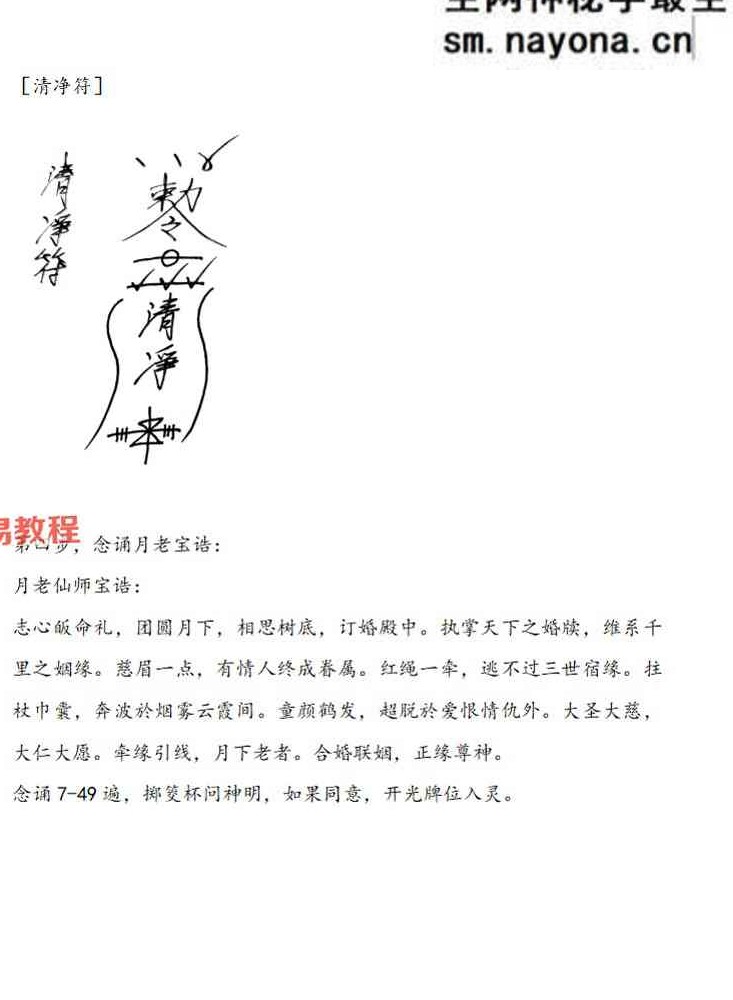 sm.nayona.cn
[清净符]
清净符
敕令
清净
易教程
第四步，念诵月老宝诰：
月老仙师宝诰：
志心皈命礼，团圆月下，相思树底，订婚殿中。执掌天下之婚牍，维系千
里之姻缘。慈眉一点，有情人终成眷属。红绳一牵，逃不过三世宿缘。拄
杖巾囊，奔波於烟雾云霞间。童颜鹤发，超脱於爱恨情仇外。大圣大慈，
大仁大愿。牵缘引线，月下老者。合婚联姻，正缘尊神。
念诵 7-49 遍，掷筊杯问神明，如果同意，开光牌位入灵。